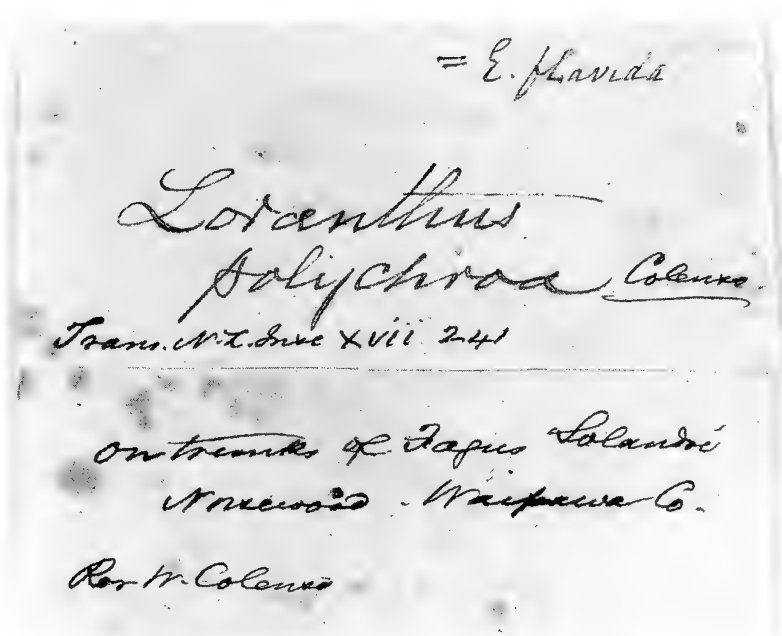 = E. flavida
Loranthus
polychroa Colenso.
Trans. N.Z. Inst XVII 241
on trunks of Fagus Solandri
Norsewood - Waipawa Co.
Rev W. Colenso